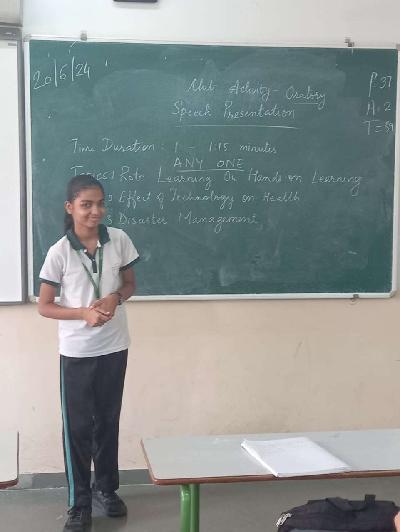 20/6/24
Club Activity - Oratory
Speech Presentation
P 37
A: 2
T = 39
Time Duration : 1 - 1:15 minutes
ANY ONE
Topics: Rote Learning Or Hands on Learning
Effect of Technology on Health
Disaster Management